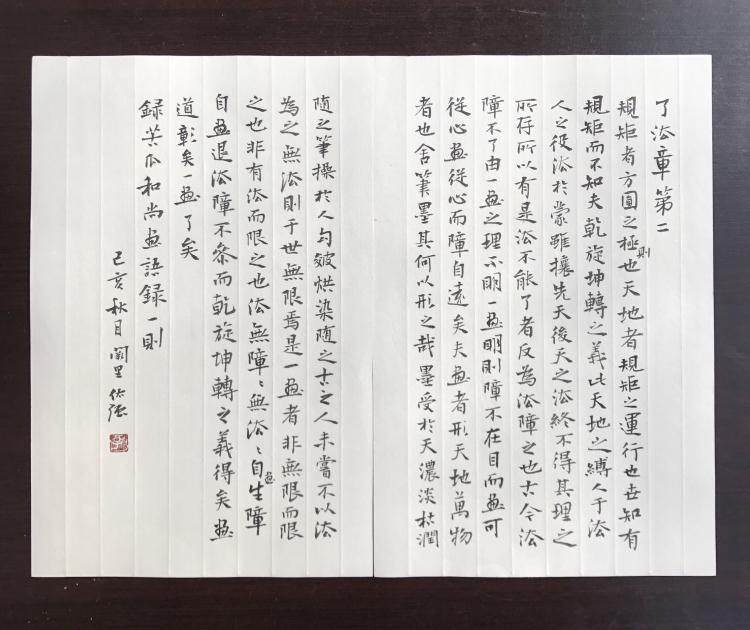 了法章第二
規矩者方圓之極則也天地者規矩之運行也世知有
規矩而不知夫乾旋坤轉之義此天地之縛人于法
人之役法於蒙雖攘先天後天之法終不得其理之
所存所以有是法不能了者反為法障之也古今法
障不了由一畫之理不明一畫明則障不在目而畫可
從心畫從心而障自遠矣夫畫者形天地萬物
者也舍筆墨其何以形之哉墨受於天濃淡枯潤
隨之筆操於人勾皴烘染隨之古之人未嘗不以法
為之無法則于世無限焉是一畫者非無限而限
之也非有法而限之也法無障〻無法〻自畫生障
自畫退法障不參而乾旋坤轉之義得矣畫
道彰矣一畫了矣
錄苦瓜和尚畫語錄一則
己亥秋月闕里